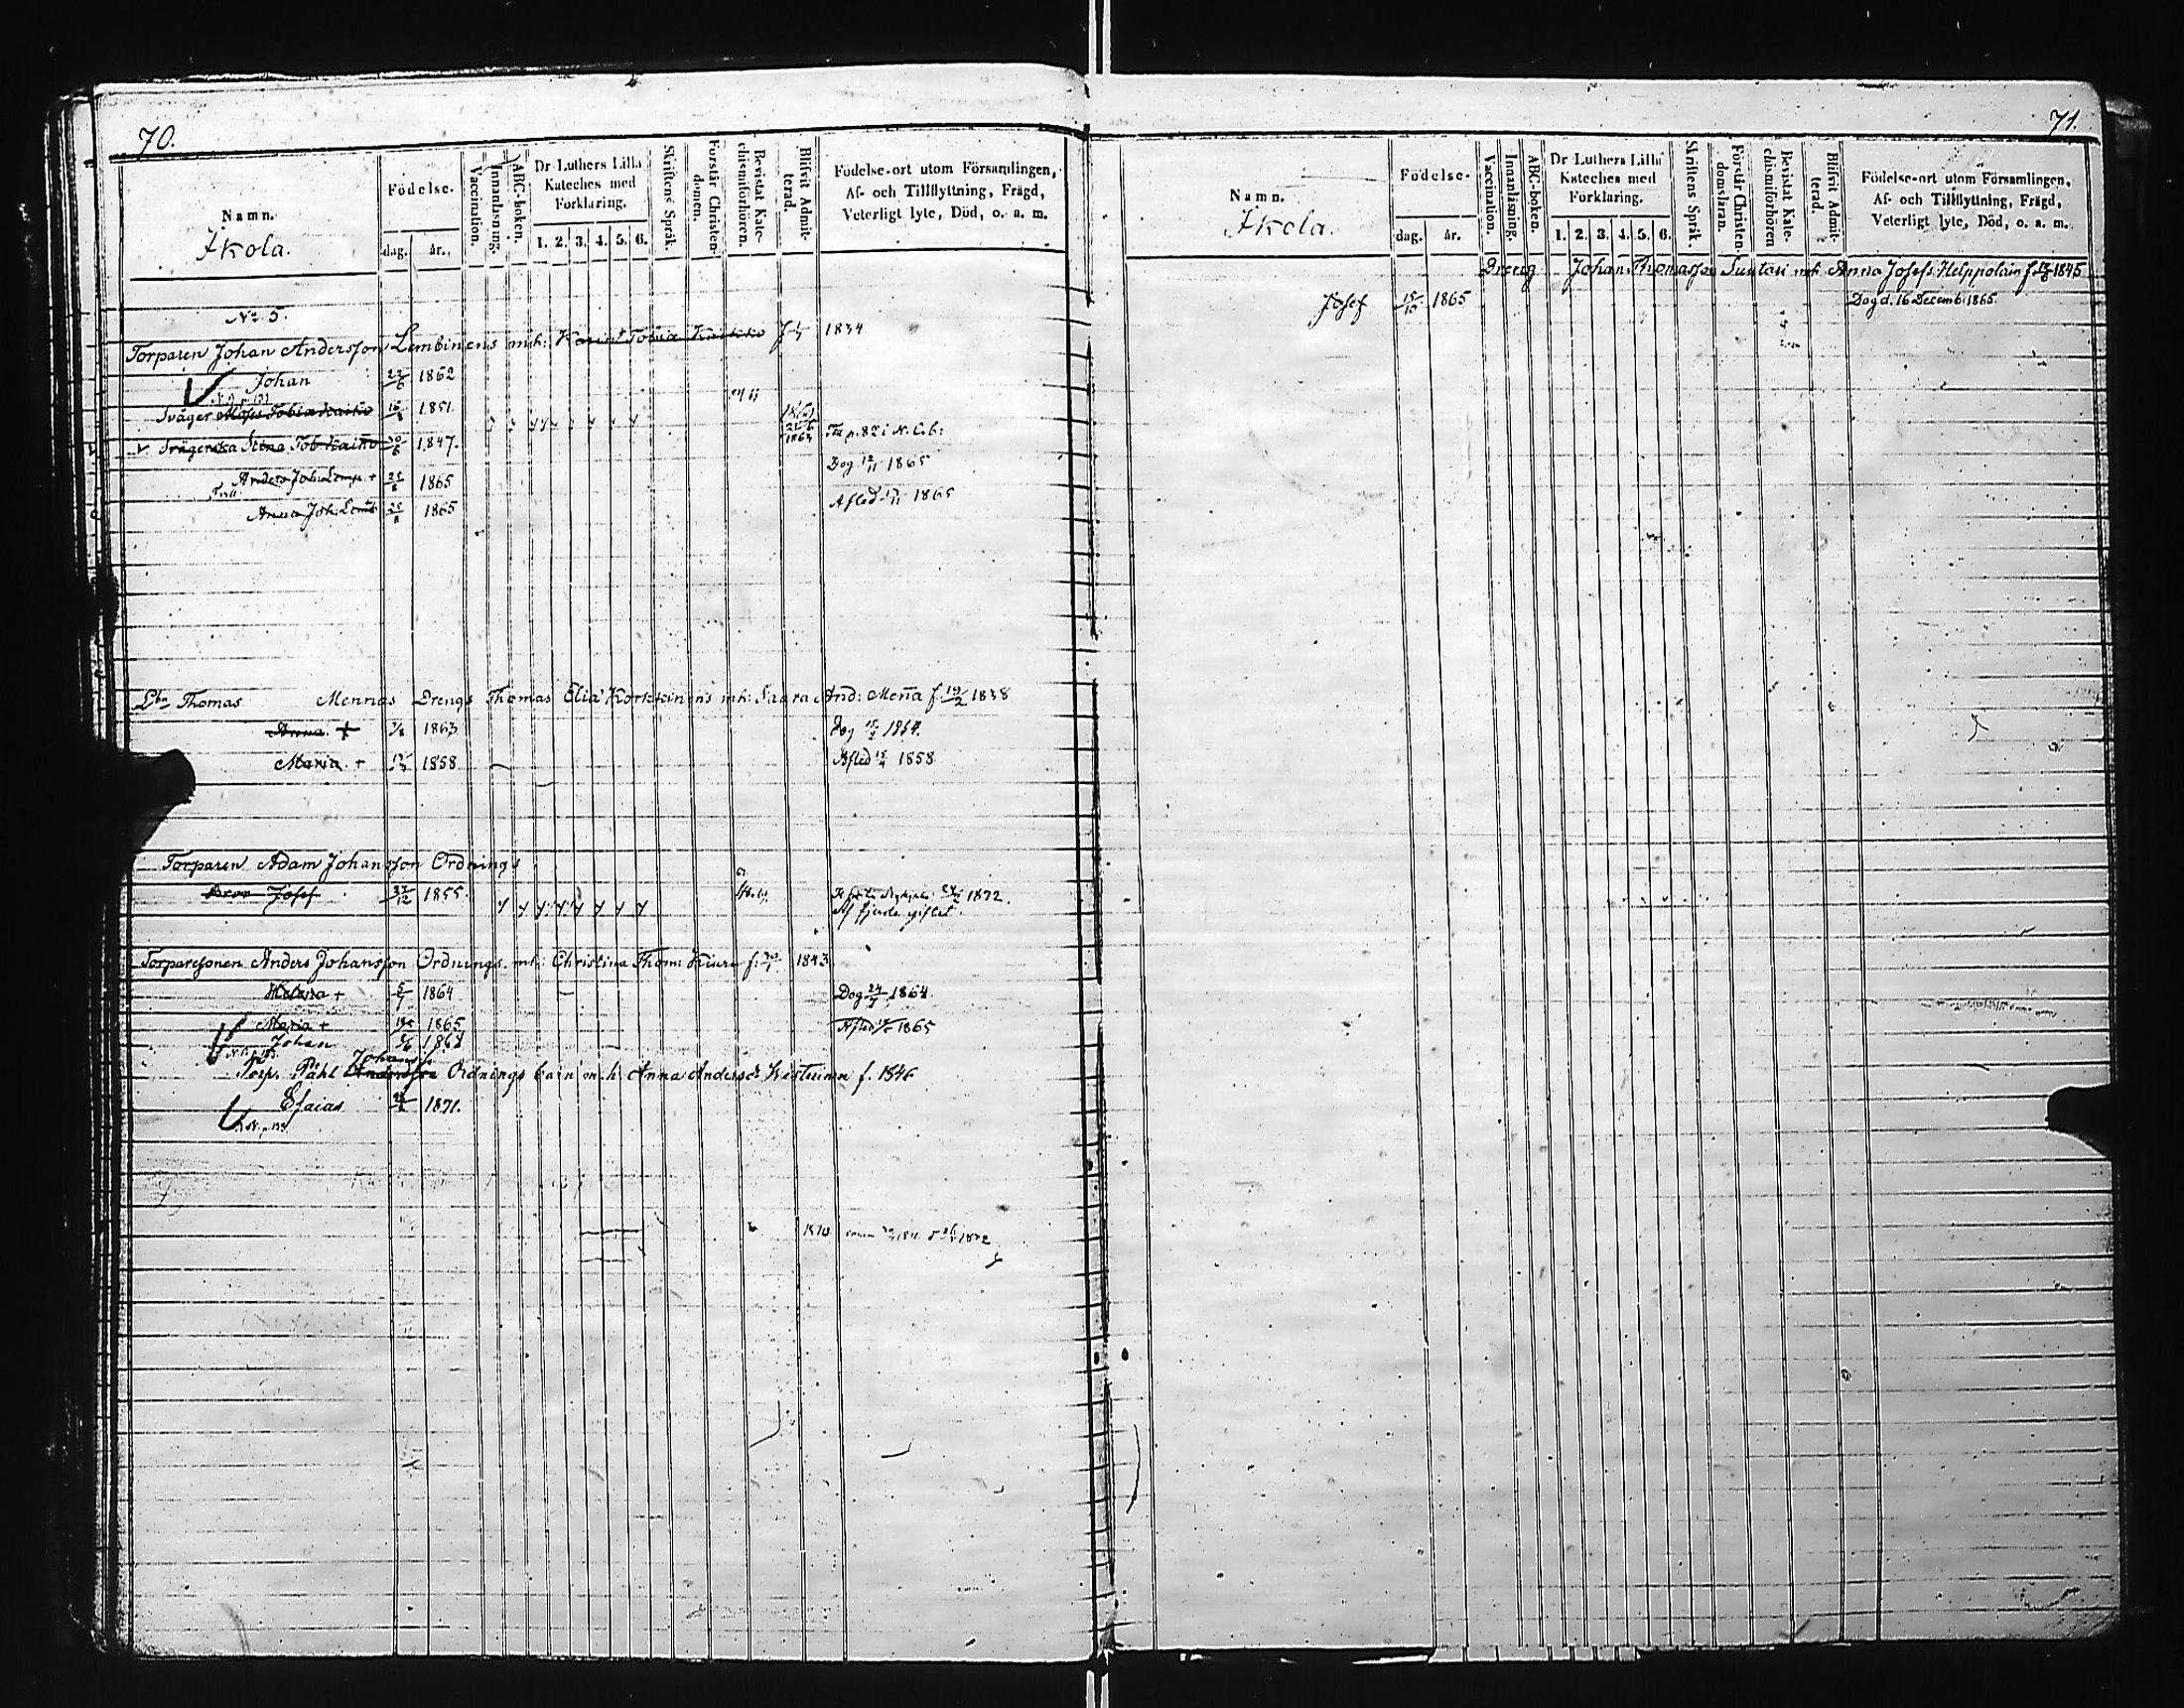 70.
Namn.
Ikola.
Födelse-
dag. år.
Vaccination.
Innanläsning.
ABC-boken.
Dr Luthers Lilla
Kateches med
Förklaring.
1. 2. 3. 4. 5. 6.
Skriftens Språk.
Förstår Christen-
domen.
Bevistat Kate-
chismiförhören.
Blifvit Admit-
terad.
Födelse-ort utom Församlingen,
Af- och Tillflyttning, Frägd,
Veterligt lyte, Död, o. s. m.
No 5.
Torparen Johan Andersson Lembinens mh: Tobia f. 1834
Johan 23/6 1862
Sväger Moses Tobia 1851
Svägerska Stina Tob 1847. p. 82 i N. C. b:
Anders Joh: + 25/8 1865 Dog 12/11 1865
Anna Joh: 25/8 1865 Afled 1865
Thomas Mennas Drengs Thomas Elia Korkkinens mh: Sagra And: Mena f. 19/2 1838
Anna + 1863 Dog 1864.
Maria + 1858 Afled 1858
Torparen Adam Johansson Ordnings
Bror Josef 1855. 1872.
Torparesonen Anders Johansson Ordnings mh: Christina Thom: Kiuru f. 1843
Helena + 5/7 1864 Dog 24/7 1864.
Maria + 1865 Afled 1865
Johan 1868
Torp. Påhl Johanss Ordnings barn mh: Anna Andersd: f. 1846
Esaias 1871.
71.
Namn.
Ikola.
Födelse-
dag. år.
Vaccination.
Innanläsning.
ABC-boken.
Dr Luthers Lilla
Kateches med
Förklaring.
1. 2. 3. 4. 5. 6.
Skriftens Språk.
Förstår Christen-
domsläran.
Bevistat Kate-
chismiförhören
Blifvit Admit-
terad.
Födelse-ort utom Församlingen,
Af- och Tillflyttning, Frägd,
Veterligt lyte, Död, o. s. m.
Dreng Johan Thomasson Suutari mh: Anna Josefs Helppolain f. 1845
Josef 15/10 1865 Dog d. 16 Decemb: 1865.